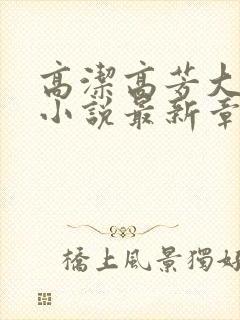 高潔高芳大
小說最新章
橋上風景獨好